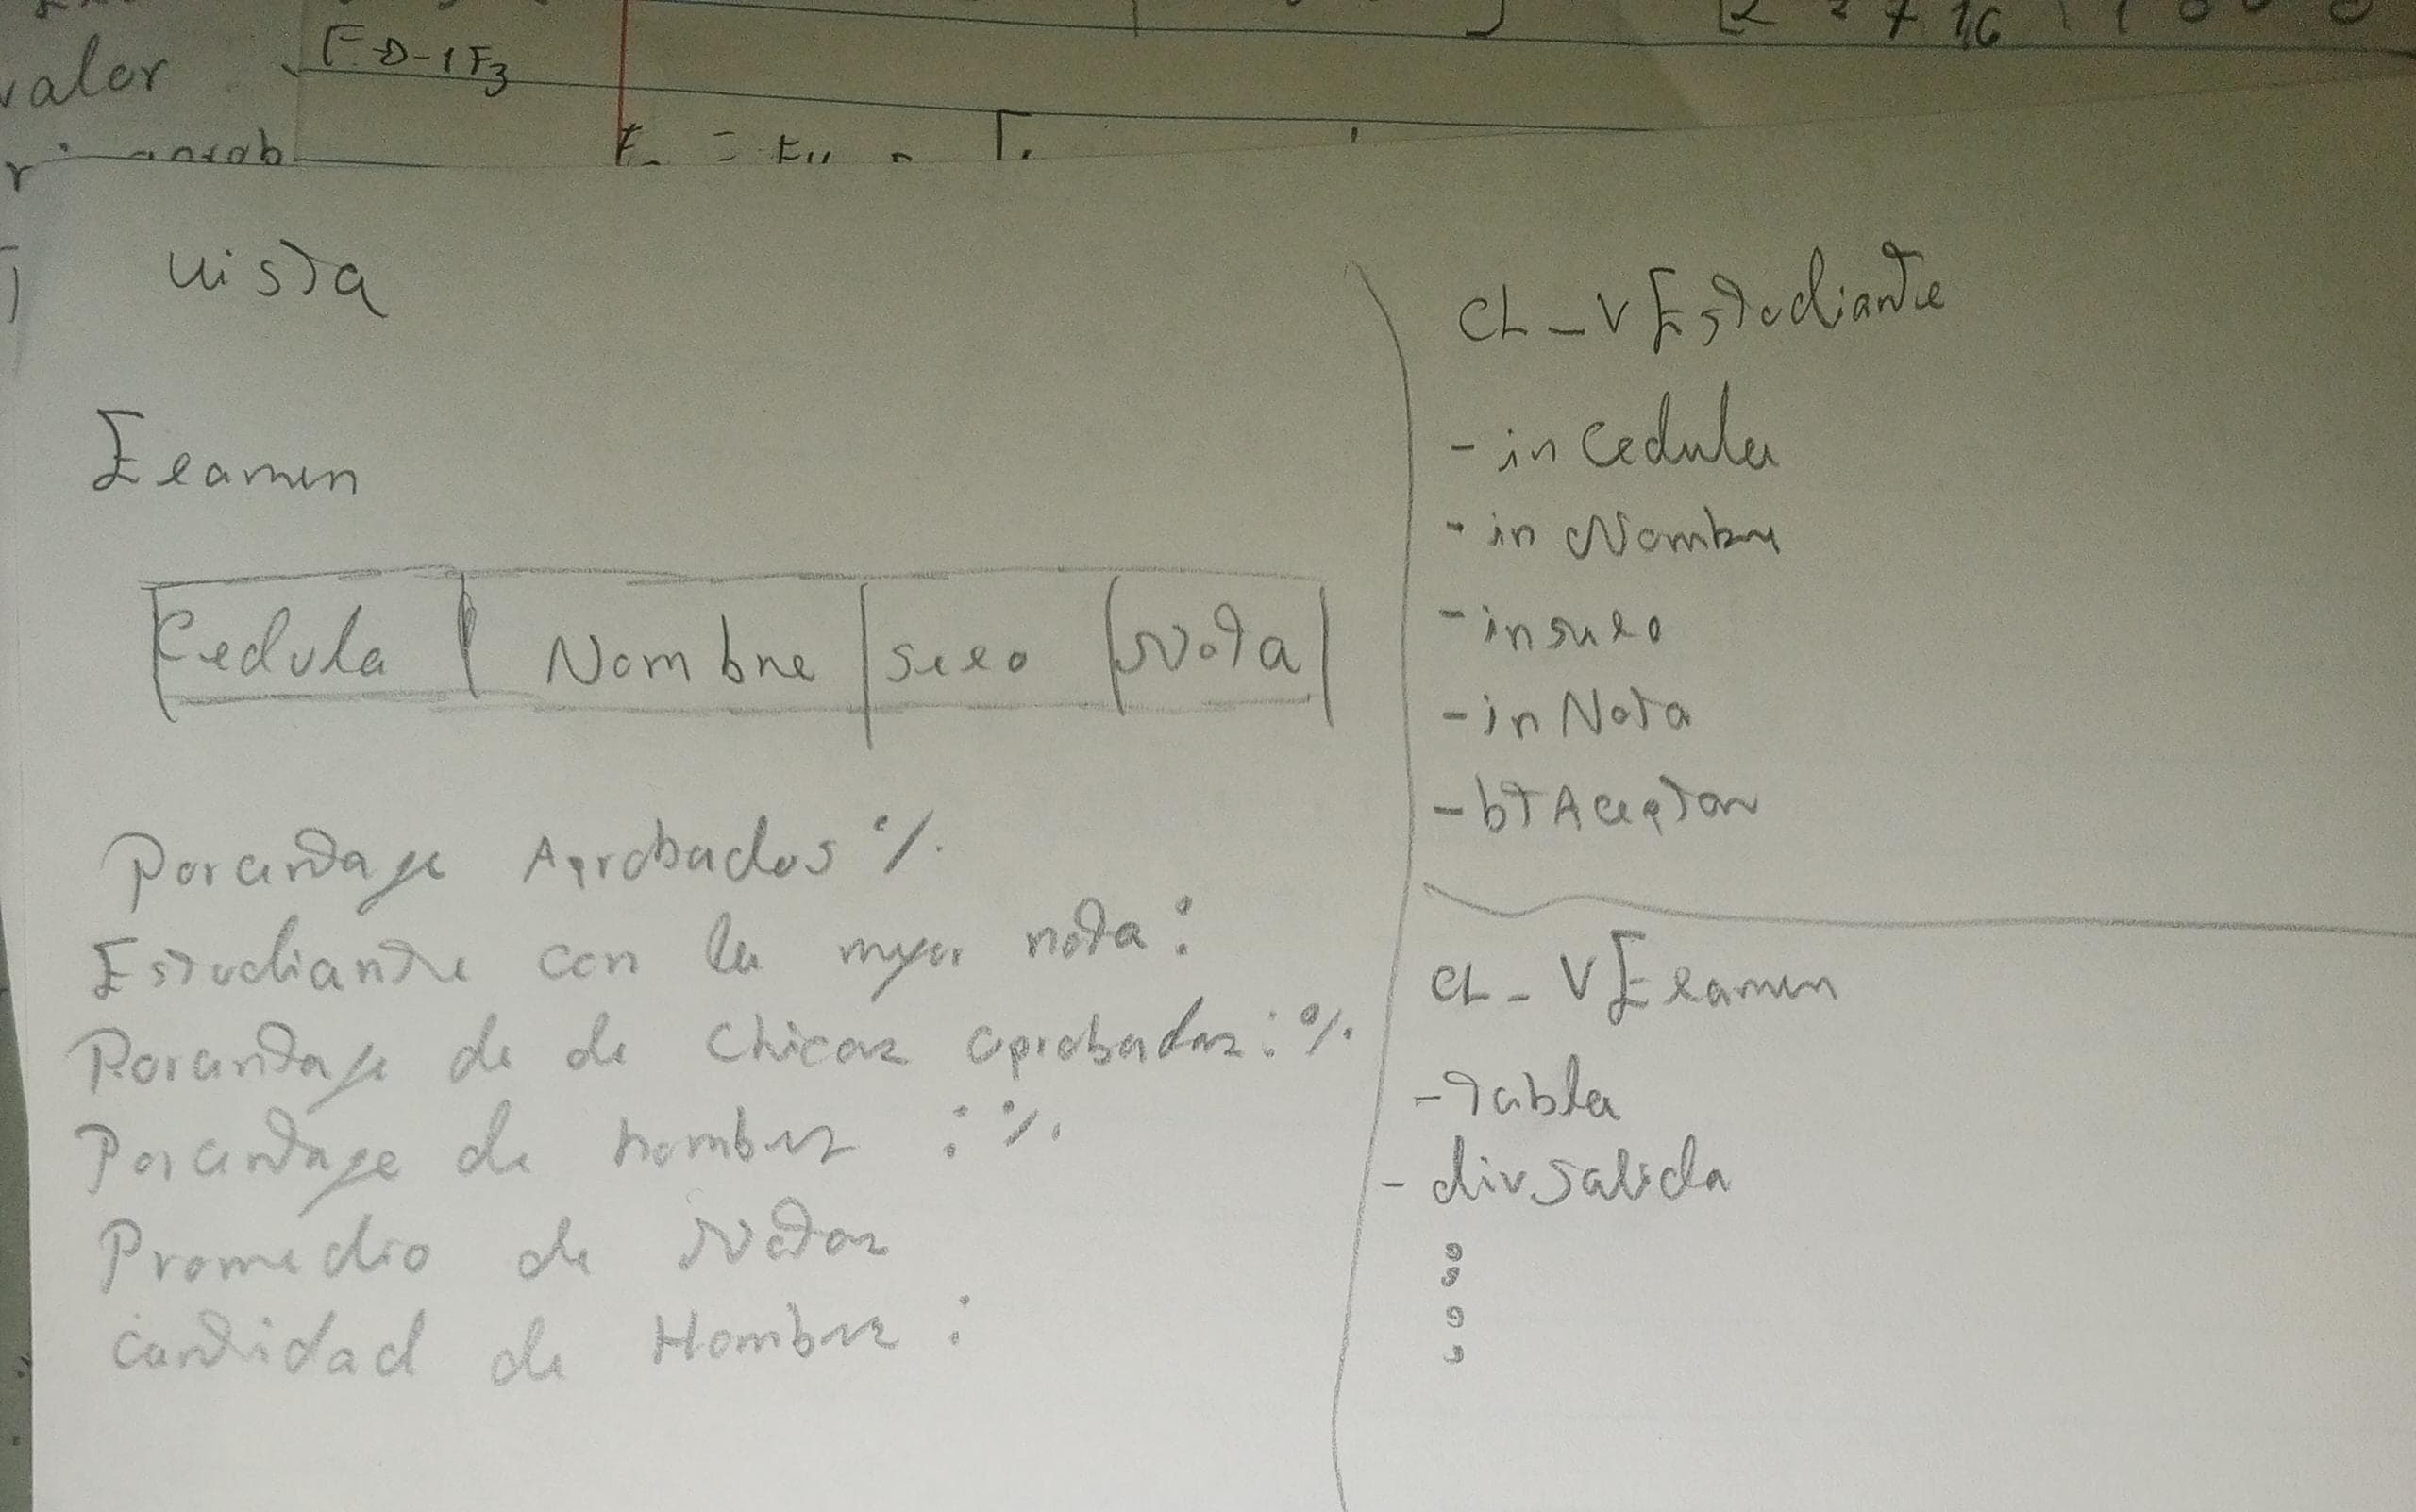 valor
F-D-1F3
2 2 7 16
vista
Examen
Cedula Nombre sexo Nota
Porcentage Aprobados %
Estudiante con la mayor nota:
Porcentage de de Chicas aprobadas: %
Porcentage de hombres : %
Promedio de Notas
Cantidad de Hombres:
CL_VEstudiante
- inCedula
- in Nombre
- insexo
- in Nota
- btAceptar
CL_VExamen
- tabla
- divsalida